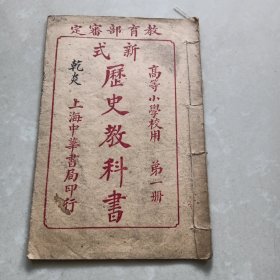 教育部審定
新式
高等小學校用 第一冊
歷史教科書
上海中華書局印行
乾炎